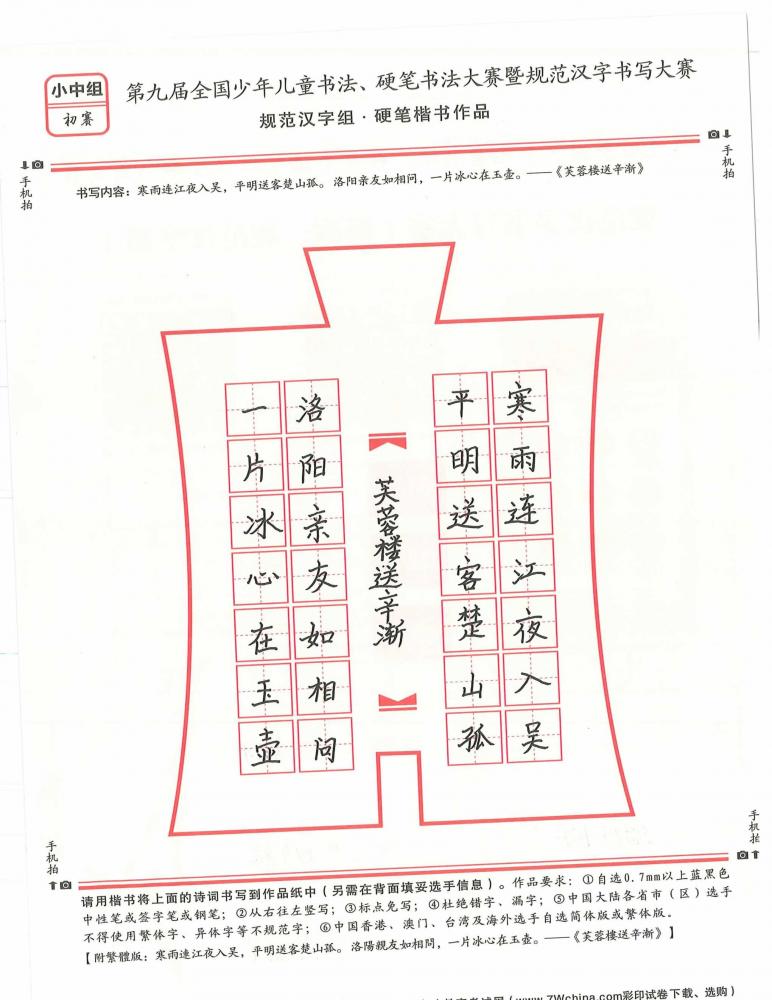 小中组
初赛
第九届全国少年儿童书法、硬笔书法大赛暨规范汉字书写大赛
规范汉字组·硬笔楷书作品
手机拍
手机拍
书写内容：寒雨连江夜入吴，平明送客楚山孤。洛阳亲友如相问，一片冰心在玉壶。——《芙蓉楼送辛渐》
寒雨连江夜入吴
平明送客楚山孤
芙蓉楼送辛渐
洛阳亲友如相问
一片冰心在玉壶
手机拍
手机拍
请用楷书将上面的诗词书写到作品纸中（另需在背面填妥选手信息）。作品要求：①自选0.7mm以上蓝黑色
中性笔或签字笔或钢笔；②从右往左竖写；③标点免写；④杜绝错字、漏字；⑤中国大陆各省市（区）选手
不得使用繁体字、异体字等不规范字；⑥中国香港、澳门、台湾及海外选手自选简体版或繁体版。
【附繁體版：寒雨連江夜入吴，平明送客楚山孤。洛陽親友如相問，一片冰心在玉壶。——《芙蓉楼送辛渐》】
网（www.7Wchina.com彩印试卷下载、选购）